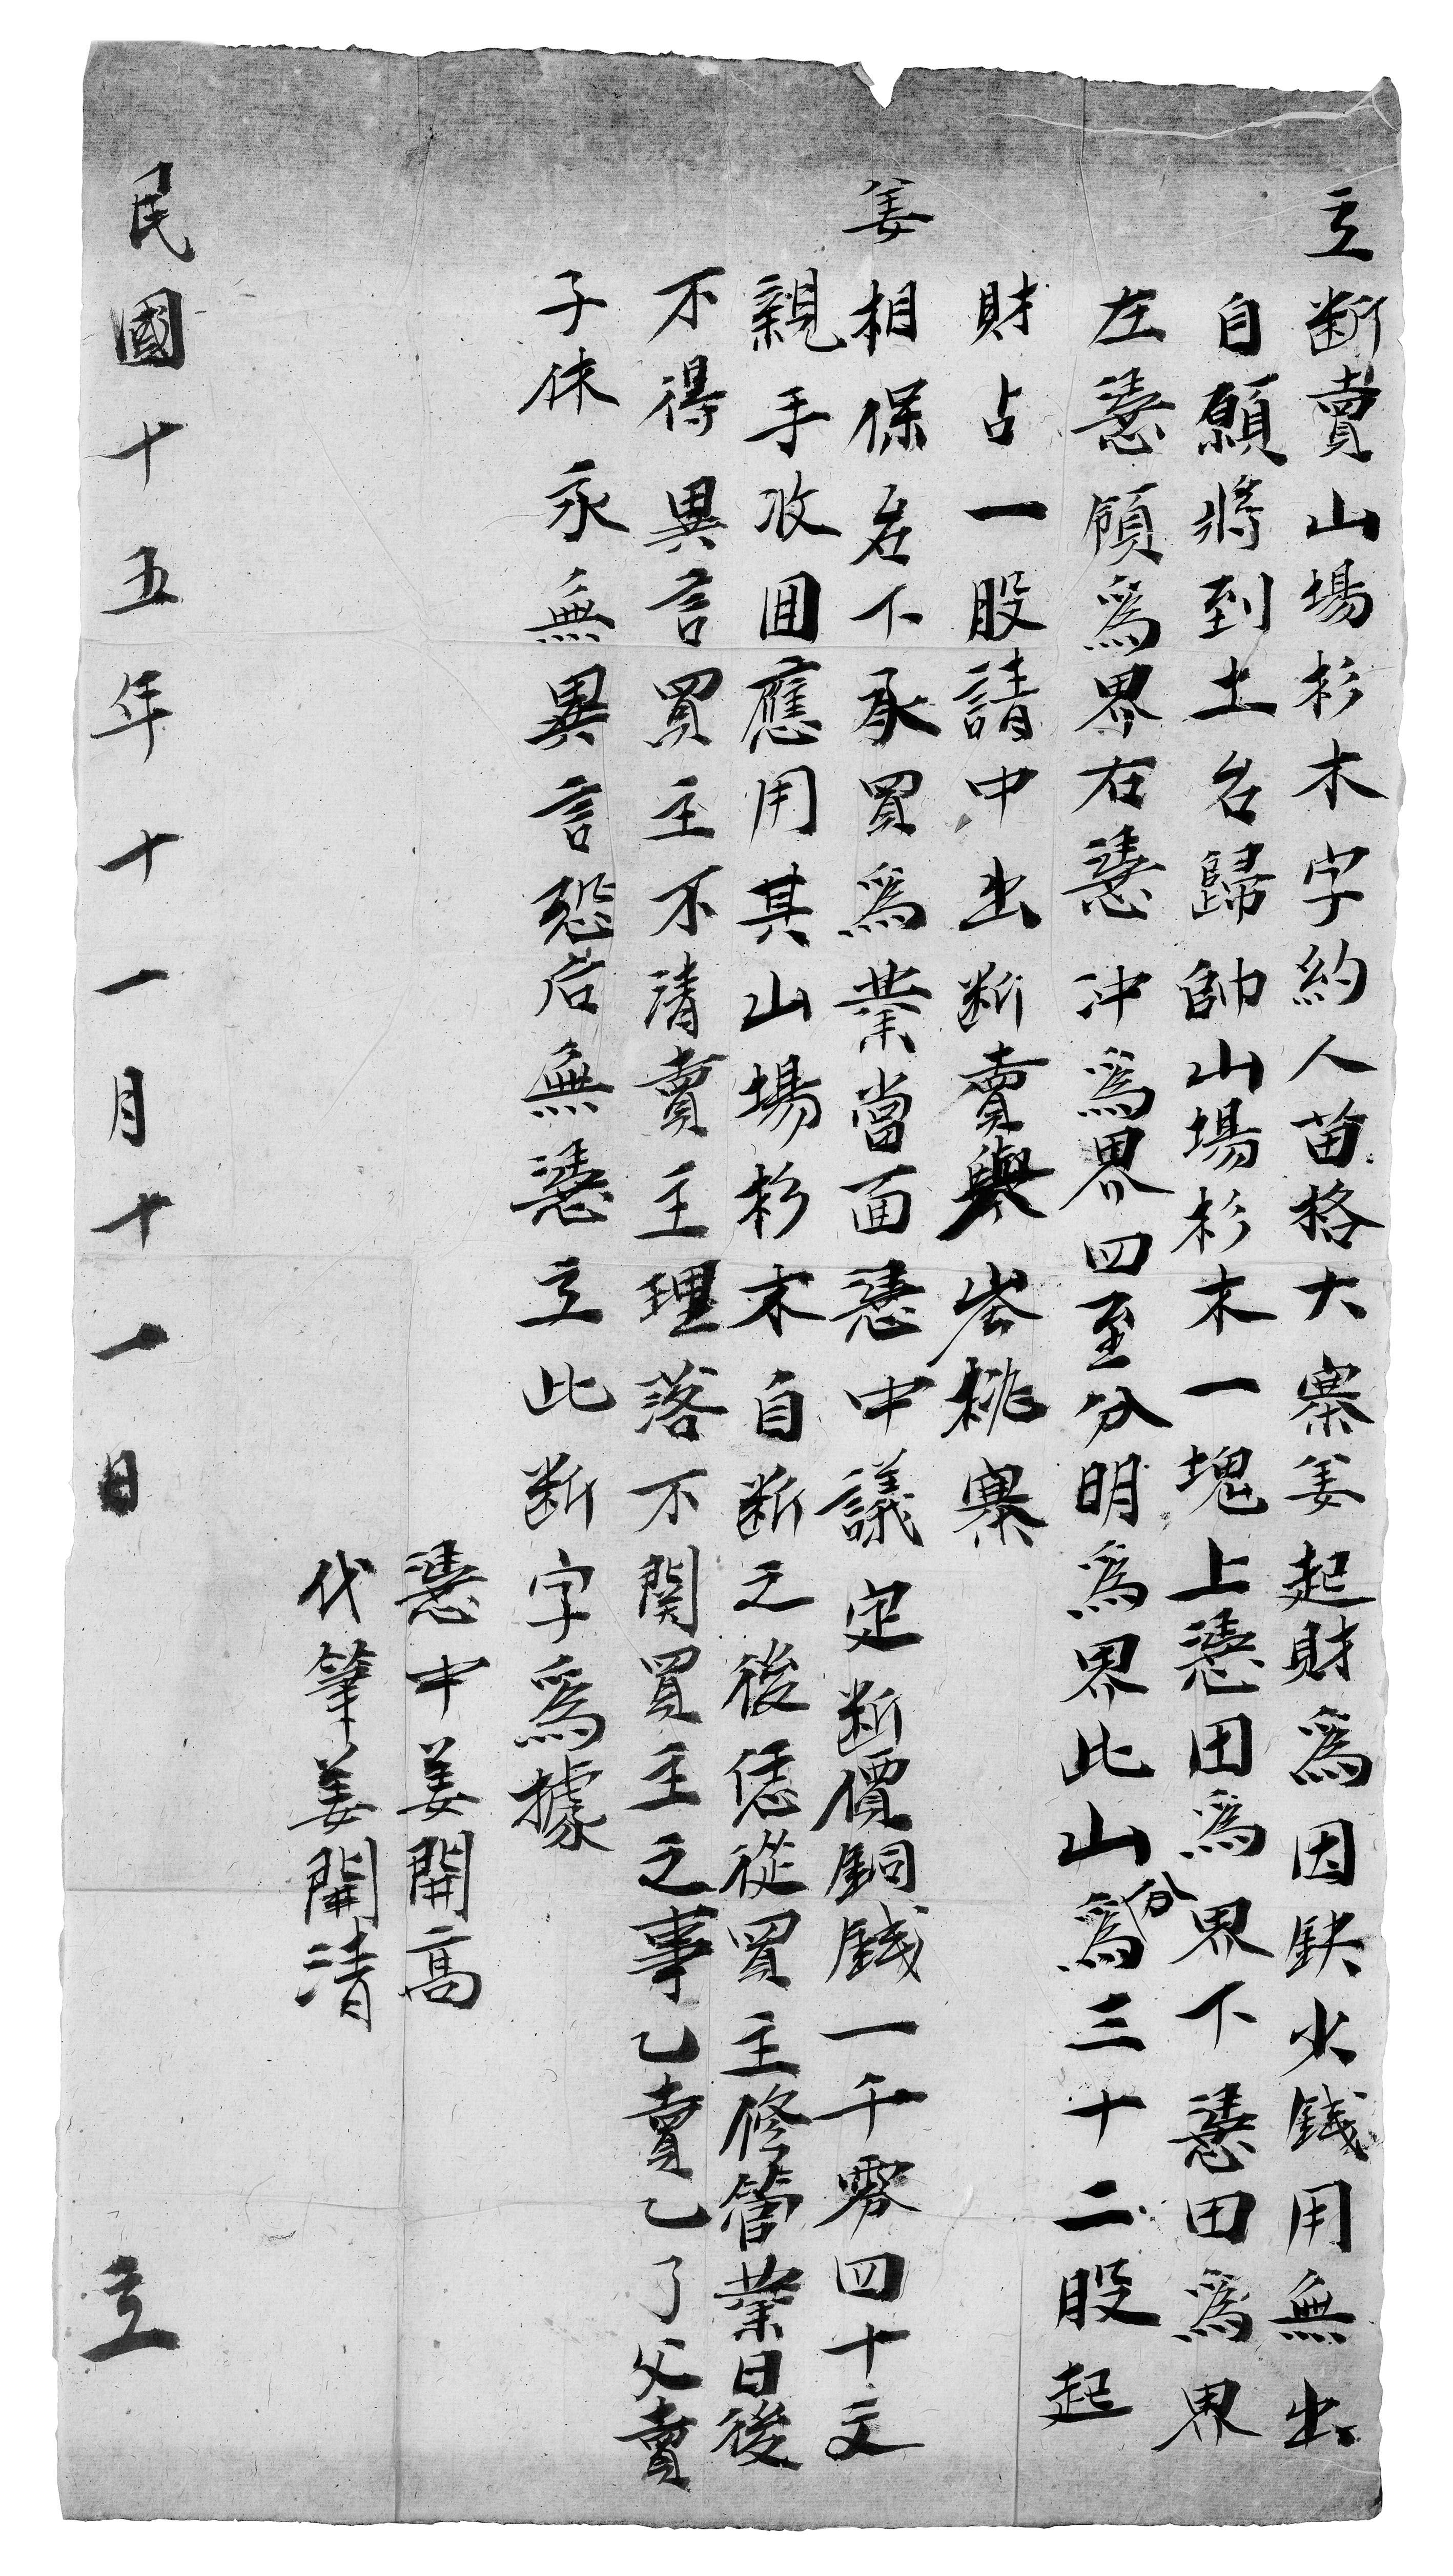 立断賣山場杉木字約人苗格大寨姜起財爲因缺火錢用無出
自願將到土名歸帥山場杉木一塊上憑田爲界下憑田爲界
左憑嶺爲界右憑沖爲界四至分明爲界此山分爲三十二股起
財占一股請中出断賣與岩桃寨
姜相保名下承買爲業當面憑中議定断價銅錢一千零四十文
親手收回應用其山場杉木自断之後恁從買主修管業日後
不得異言買主不清賣主理落不関買主之事乙賣乙了父賣
子休永無異言恐后無憑立此断字爲據
憑中姜開高
代筆姜開清
民國十五年十一月十一日 立